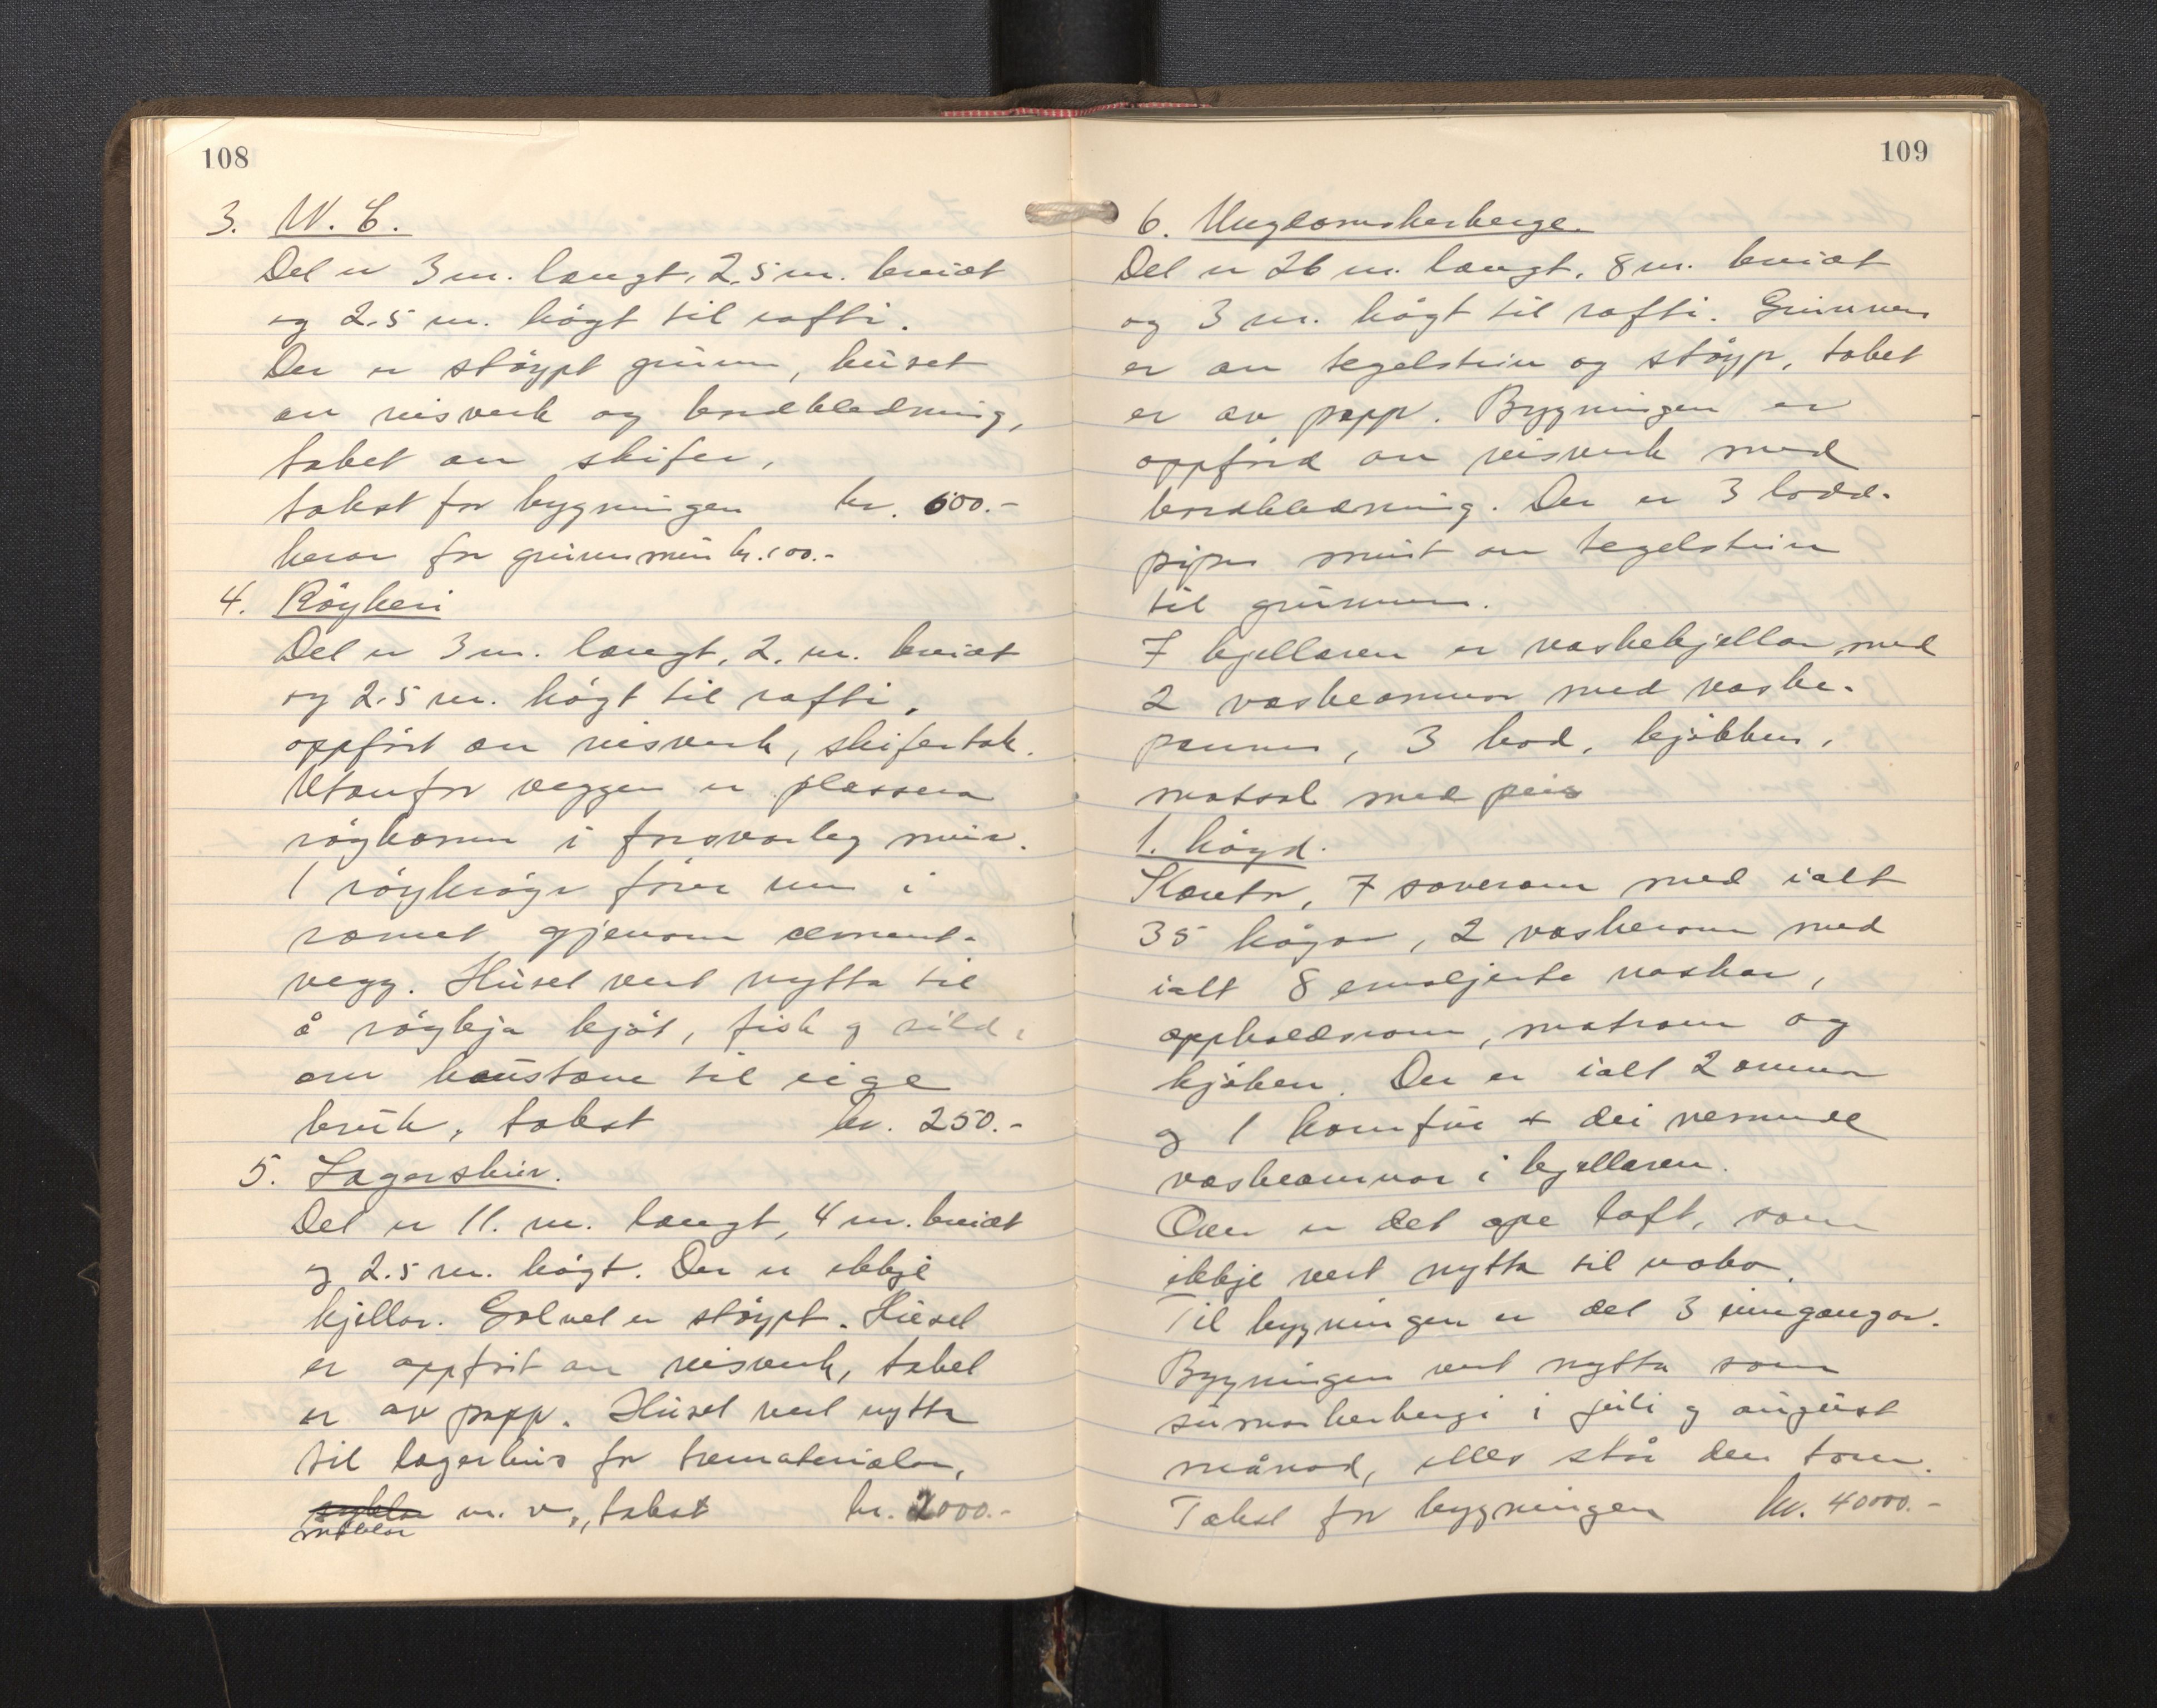 108
3. W. C.
Det er 3 m. langt, 2,5 m. breidt
og 2.5 m. högt til rafti.
Der er stöypt grunn, huset
av reisverk og bordkledning,
taket av skifer,
takst for bygningen kr. 600.-
herav for grunnmur kr. 100.-
4. Röykeri
Det er 3 m. langt, 2. m. breidt
og 2.5 m. högt til rafti,
oppfört av reisverk, skifertak.
Utanfor veggen er plassera
röykomn i forsvarleg mur.
1 röykröyr förer inn i
romet gjenom cement-
vegg. Huset vert nytta til
å röykja kjöt, fisk og sild,
av haustane til eige
bruk, takst kr. 250.-
5. Lagerskur.
Det er 11. m. langt, 4 m. breidt
og 2.5 m. högt. Der er ikkje
kjellar. Golvet er stöypt. Huset
er oppfört av reisverk, taket
er av papp. Huset vert nytta
til lagerhus for trematerialar,
sykler m. v., takst kr. 2000.-
möblar
109
6. Ungdomsherberge.
Det er 26 m. langt, 8 m. breidt
og 3 m. högt til rafti. Grunnen
er av tegelstein og stöyp, taket
er av papp. Bygningen er
oppförd av reisverk med
bordkledning. Der er 3 lodd-
piper murt av tegelstein
til grunnen.
I kjellaren er vaskekjellar med
2 vaskeomnar med vaske-
panner, 3 bod, kjökken,
matsal med peis
1. högd.
Kontor, 7 soverom med ialt
35 köyar, 2 vaskerom med
ialt 8 emaljerte vaskar,
oppholdsrom, matrom og
kjöken. Der er ialt 2 omnar
og 1 komfur + dei nemnde
vaskeomnar i kjellaren.
Over er det ope loft, som
ikkje vert nytta til noko.
Til bygningen er det 3 inngangar.
Bygningen vert nytta som
sumarherbergi i juli og august
månad, elles står den tom.
Takst for bygningen kr. 40000.-